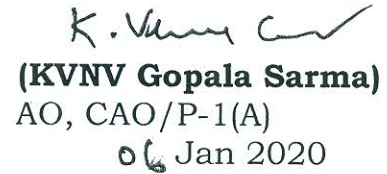 (KVNV Gopala Sarma)
AO, CAO/P-1(A)
06 Jan 2020